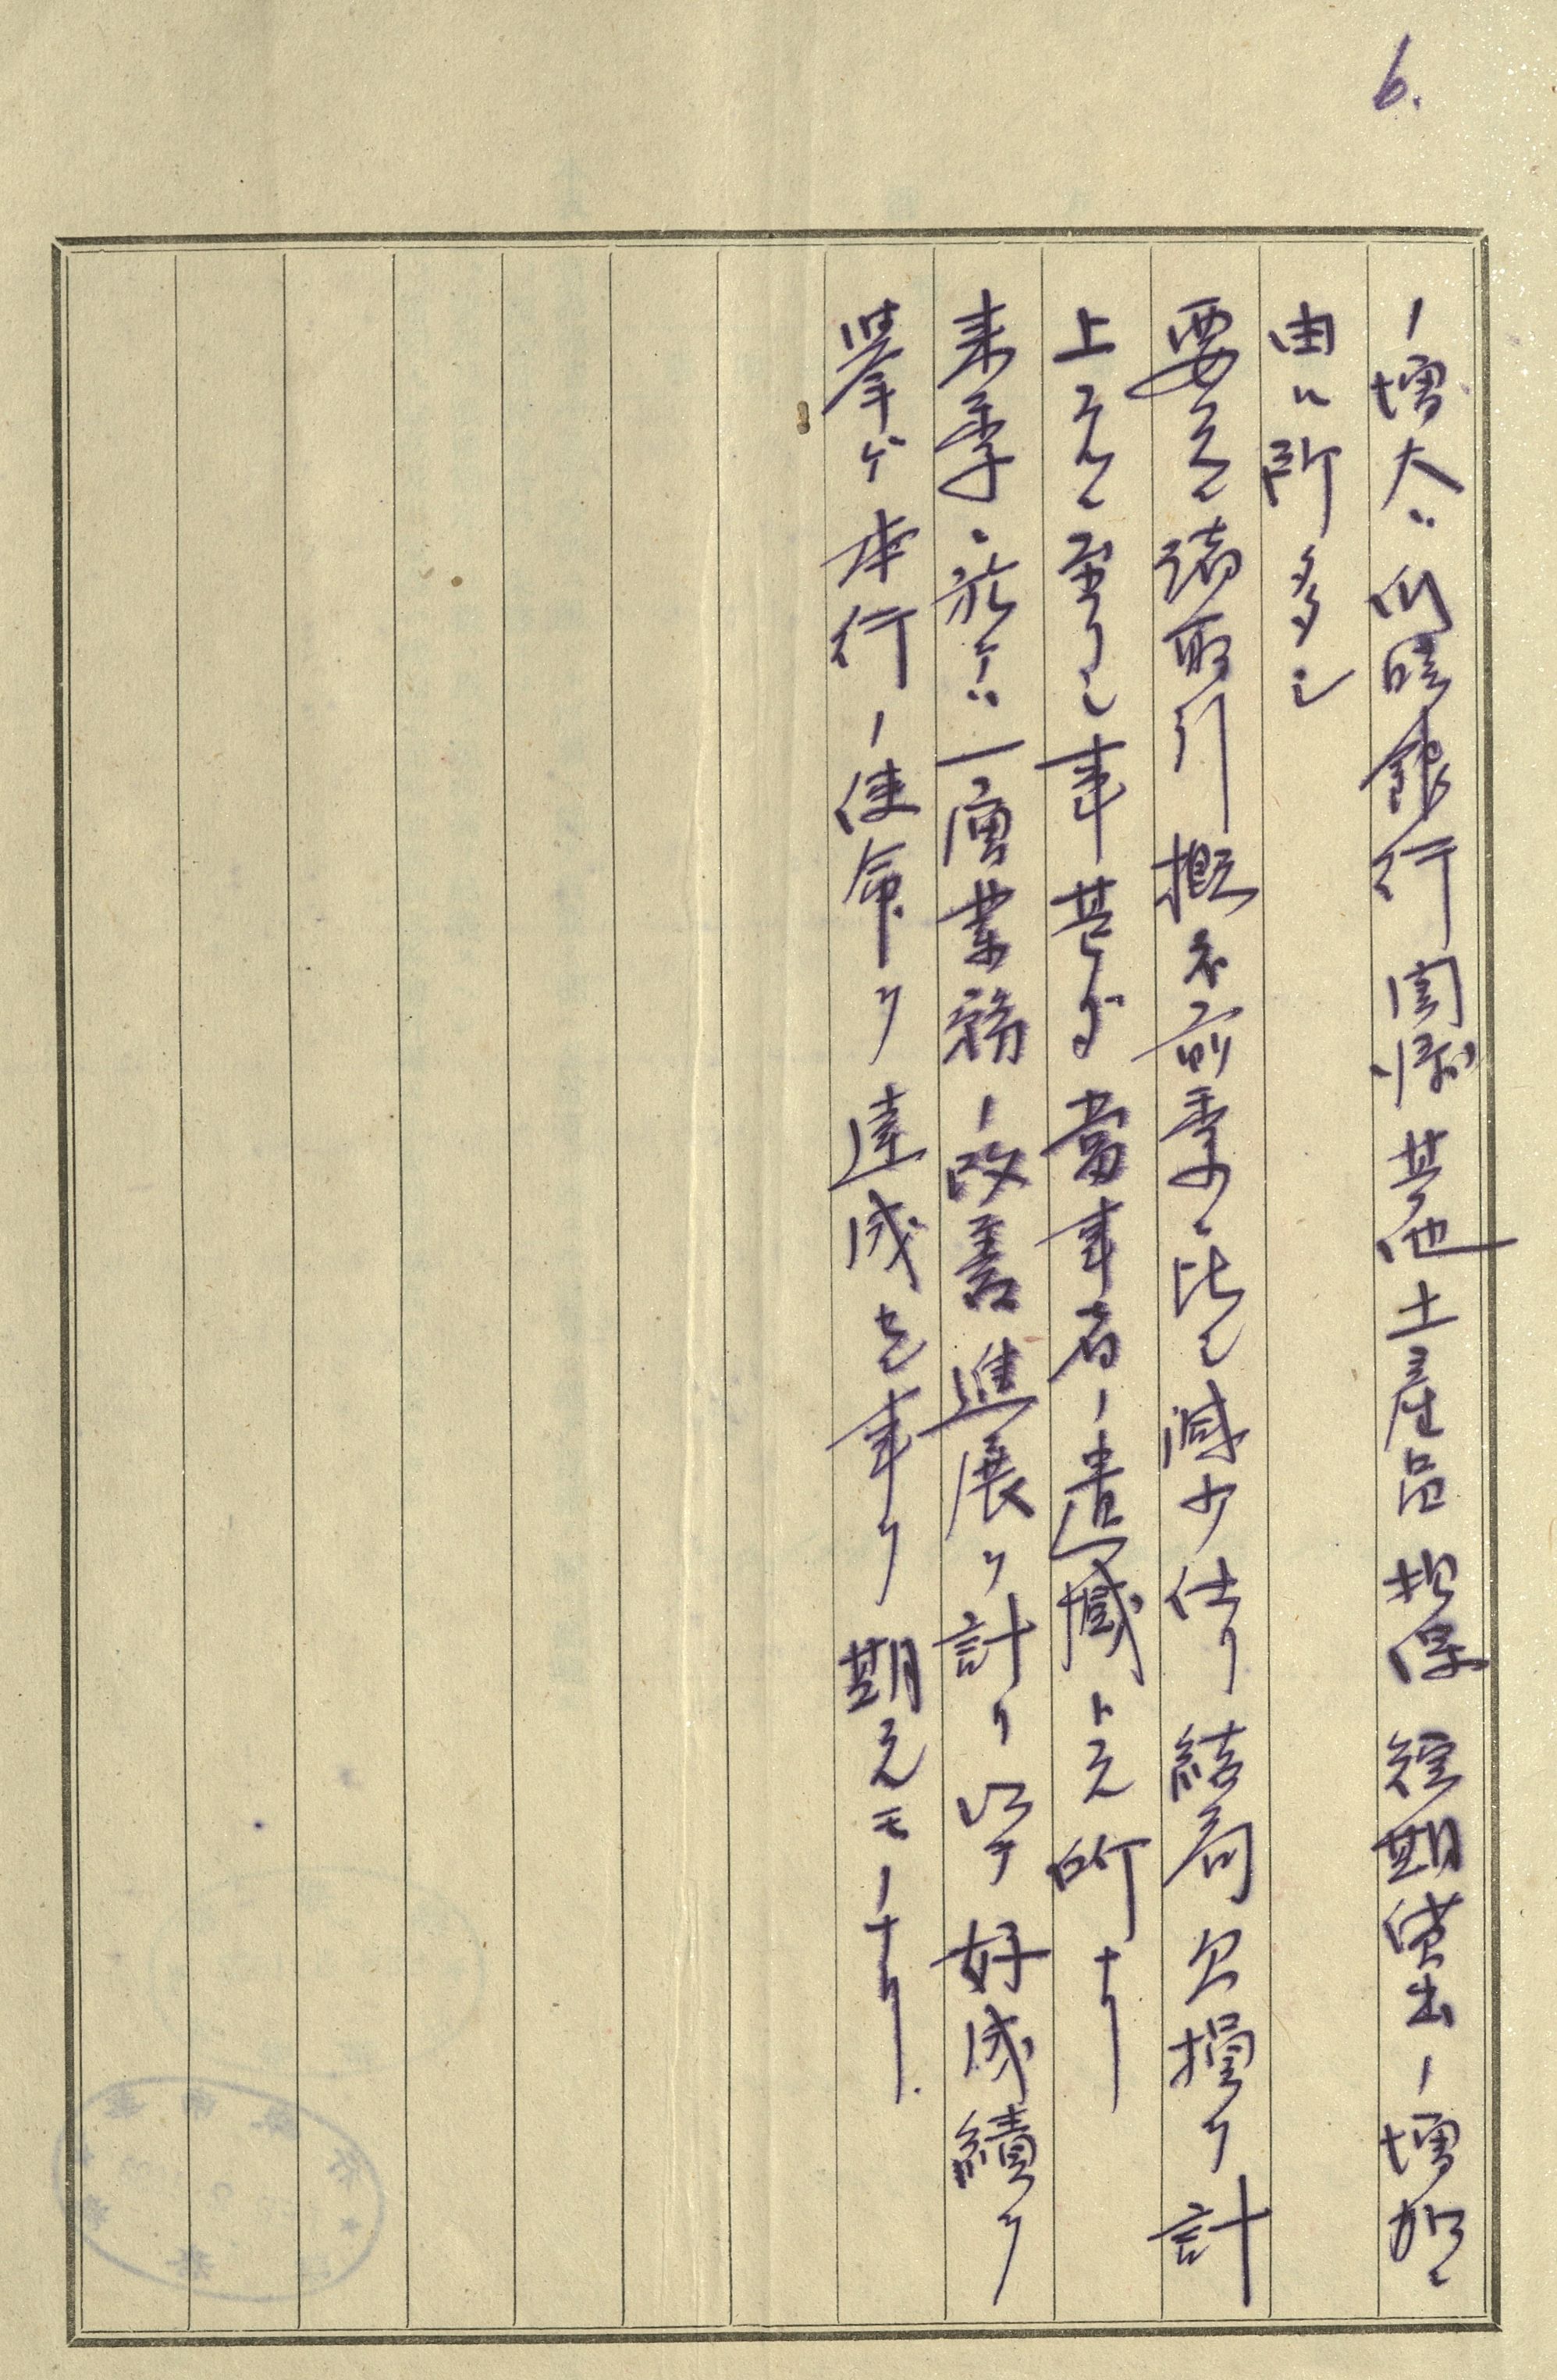 6.
ノ増大ト同時銀行関係其他土産品担保短期貸出ノ増加ニ
由ル所多シ
要スルニ諸取引概ネ前季ニ比シ減少仕リ結局欠損ヲ計
上スルニ至リシ事甚ダ當事者ノ遺憾トスル所ナリ
来季ニ於テハ一層業務ノ改善進展ヲ計リ以テ好成績ヲ
挙ゲ本行ノ使命ヲ達成セン事ヲ期スルモノナリ.